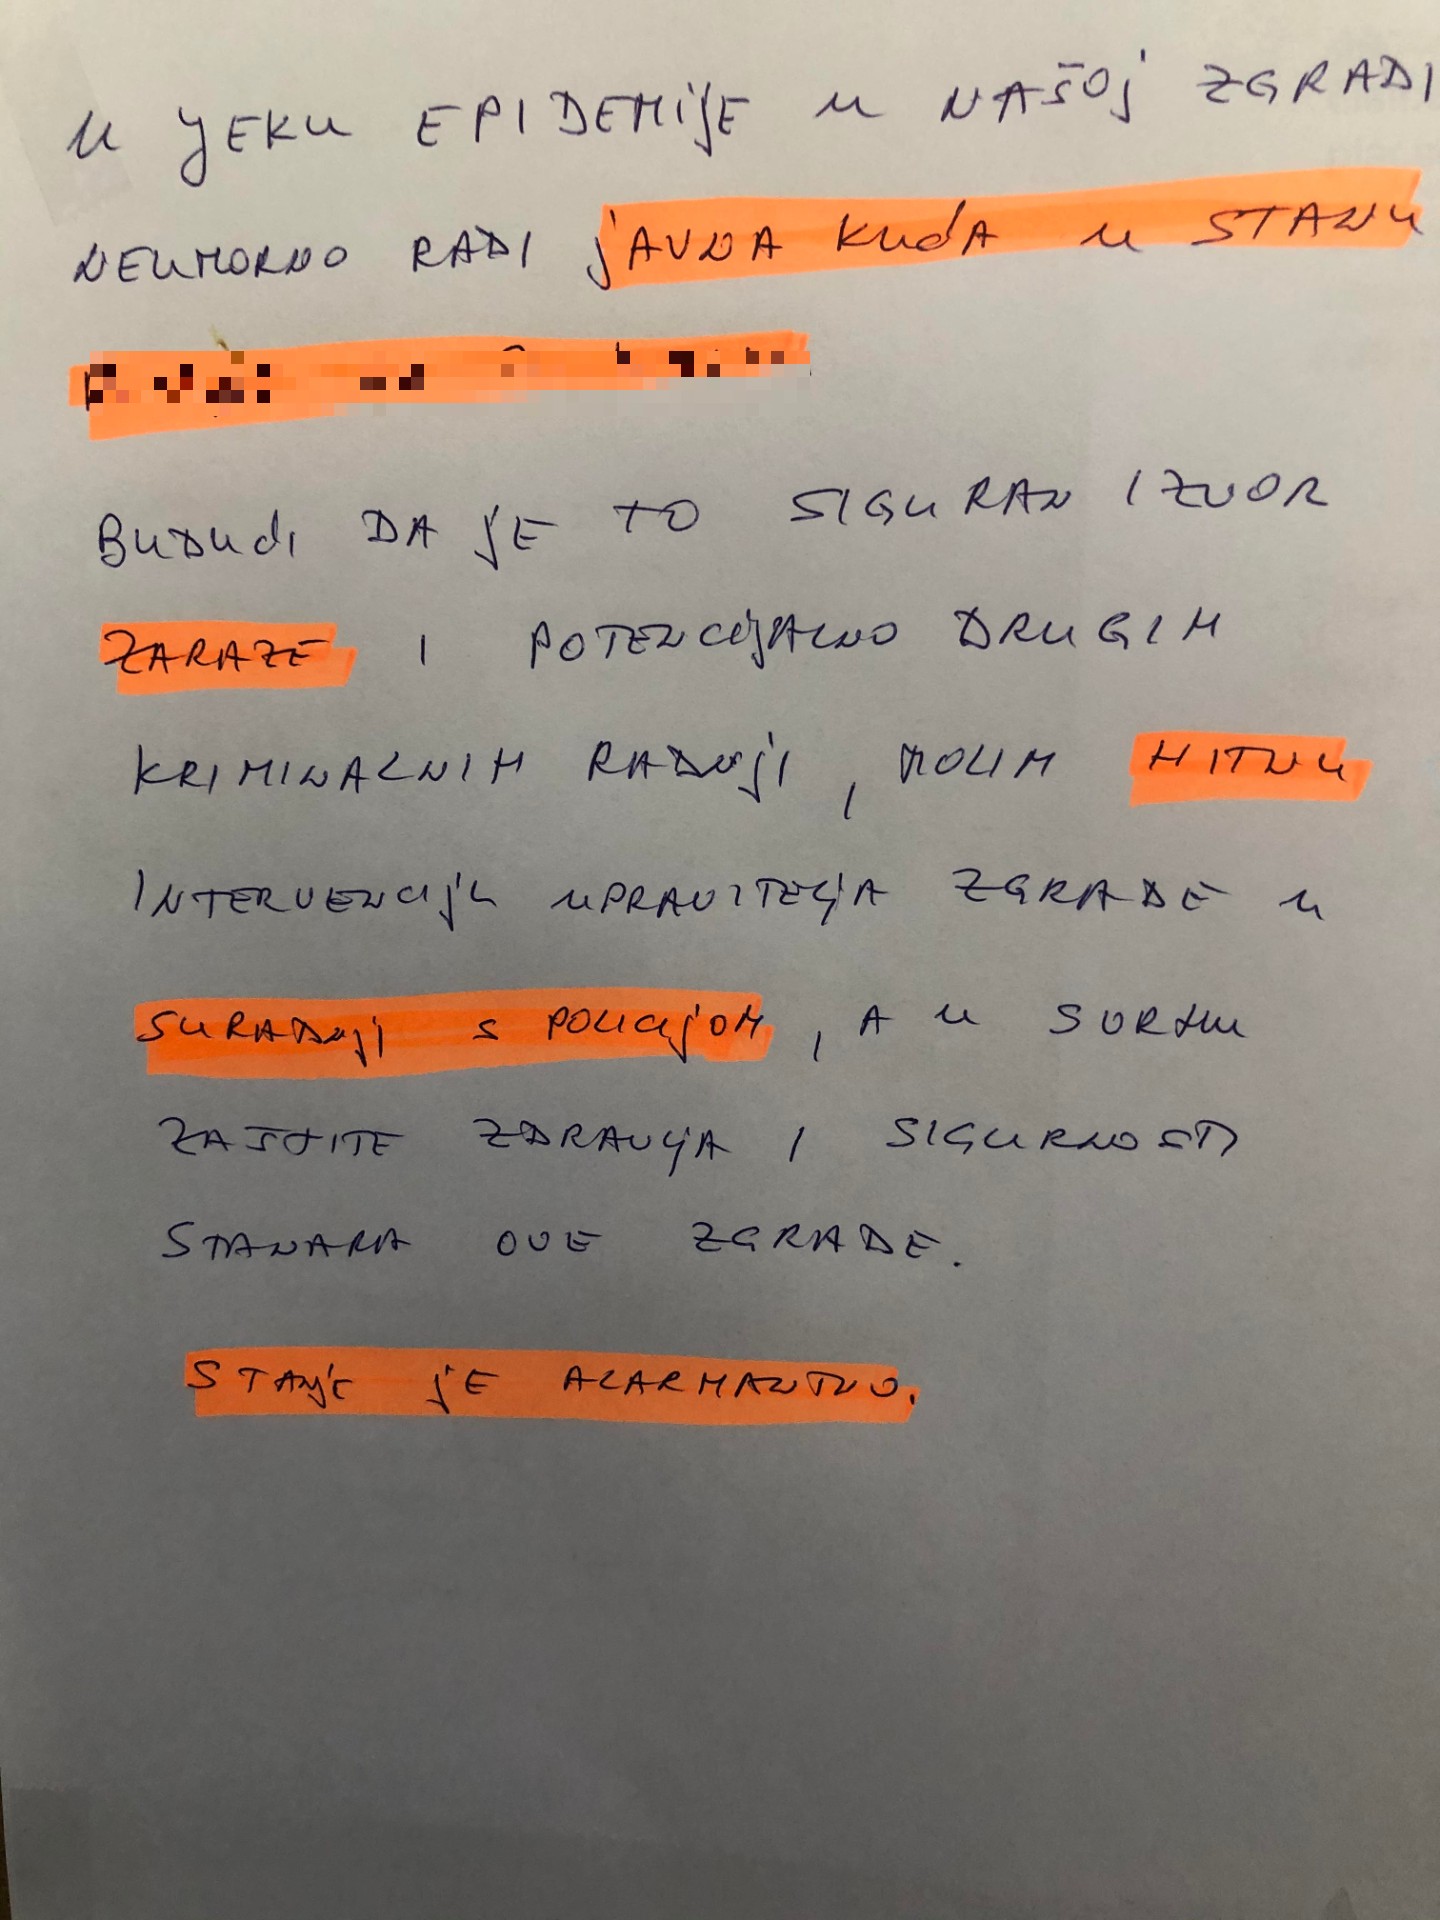 U JEKU EPIDEMIJE U NAŠOJ ZGRADI
NEUMORNO RADI JAVNA KUĆA U STANU
BUDUĆI DA JE TO SIGURAN IZVOR
ZARAZE I POTENCIJALNO DRUGIH
KRIMINALNIH RADNJI, MOLIM HITNU
INTERVENCIJU UPRAVITELJA ZGRADE U
SURADNJI S POLICIJOM, A U SVRHU
ZAŠTITE ZDRAVLJA I SIGURNOSTI
STANARA OVE ZGRADE.
STANJE JE ALARMANTNO.